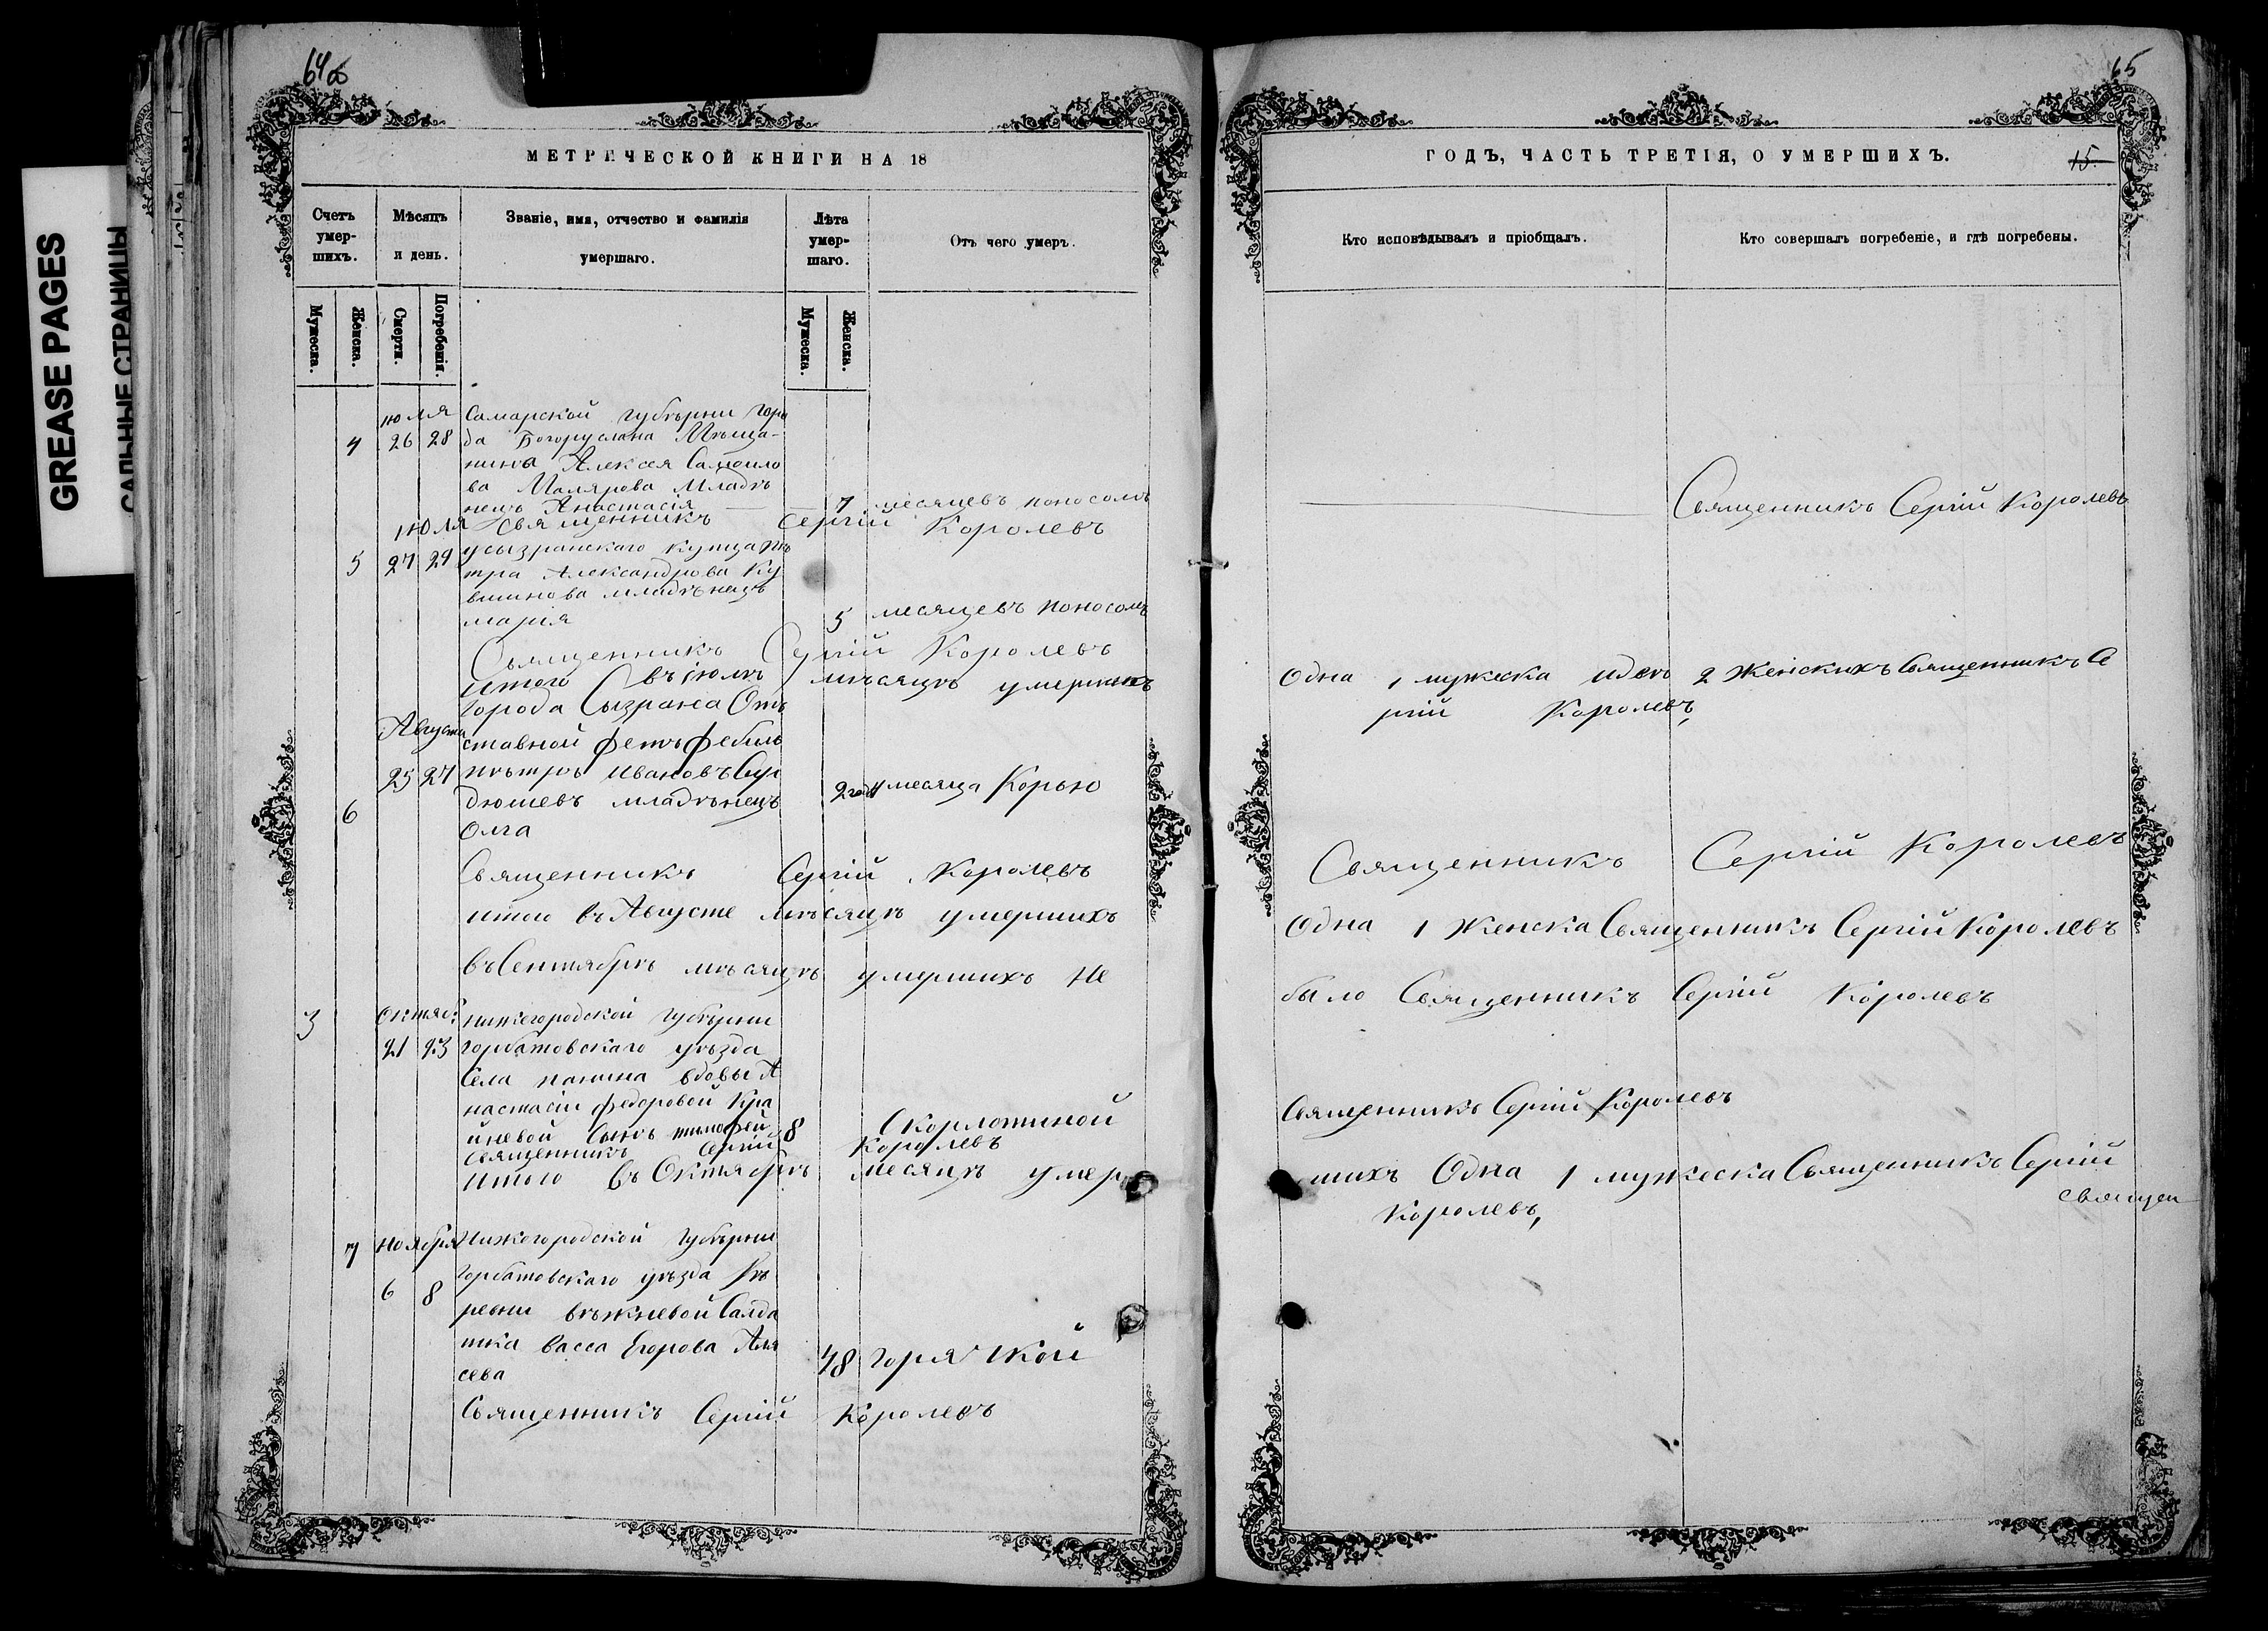 GREASE PAGES
САЛЬНЫЕ СТРАНИЦЫ
64об
МЕТРИЧЕСКОЙ КНИГИ НА 18
Счетъ умер-шихъ.
Мѣсяцъ и день.
Званіе, имя, отчество и фамилія умершаго.
Лѣта умер-шаго.
Отъ чего умеръ.
Мужеска.
Женска.
Смерти.
Погребенія.
Мужеска.
Женска.
июля Самарской губѣрни горо
4 26 28 да Богоруслана Мѣща-
нина Алексея Самоило
ва Малярова Младѣ
нецъ Анастасія 7 месяцевъ поносомъ
Священникъ Сергій Королевъ
июля
5 27 29 усызранскаго купца Пѣ
тра Александрова Ку
вшинова младѣнецъ
мария 5 месяцевъ поносомъ
Священникъ Сергій Королевъ
итого въ июлѣ мѣсяцѣ умершихъ
города Сызрана От
Августа ставной
25 27 пѣтръ Ивановъ Сур
6 дюшевъ младѣнецъ 2 года 4 месяца Корью
Олга
Священникъ Сергій Королевъ
итого въ Августе мѣсяцѣ умершихъ
въ Сентябрѣ мѣсяцѣ умершихъ Не
3 Октяб: нижегородской губѣрни
21 23 горбатовскаго уѣзда
Села панина вдовы А
настасіи федоровой Кра
йневой Сынъ тимофей 8 Скорлотиной
Священникъ Сергій Королевъ
итого въ Октябрѣ месяцѣ умер
7 Ноября Нижегородской губѣрни
горбатовскаго уѣзда дѣ
6 8 ревни вѣжневой Салда
тка васса Егорова Аля
сева 48 горячкой
Священникъ Сергій Королевъ
65
ГОДЪ, ЧАСТЬ ТРЕТІЯ, О УМЕРШИХЪ.
15
Кто исповѣдывалъ и пріобщалъ.
Кто совершалъ погребеніе, и гдѣ погребены.
Священникъ Сергій Королевъ
Одна 1 мужеска и двѣ 2 Женскихъ Священникъ Се
ргій Королевъ,
Священникъ Сергій Королевъ
Одна 1 Женска Священникъ Сергій Королевъ
было Священникъ Сергій Королевъ
Священникъ Сергій Королевъ
шихъ Одна 1 мужеска Священникъ Сергій
священ
Королевъ,